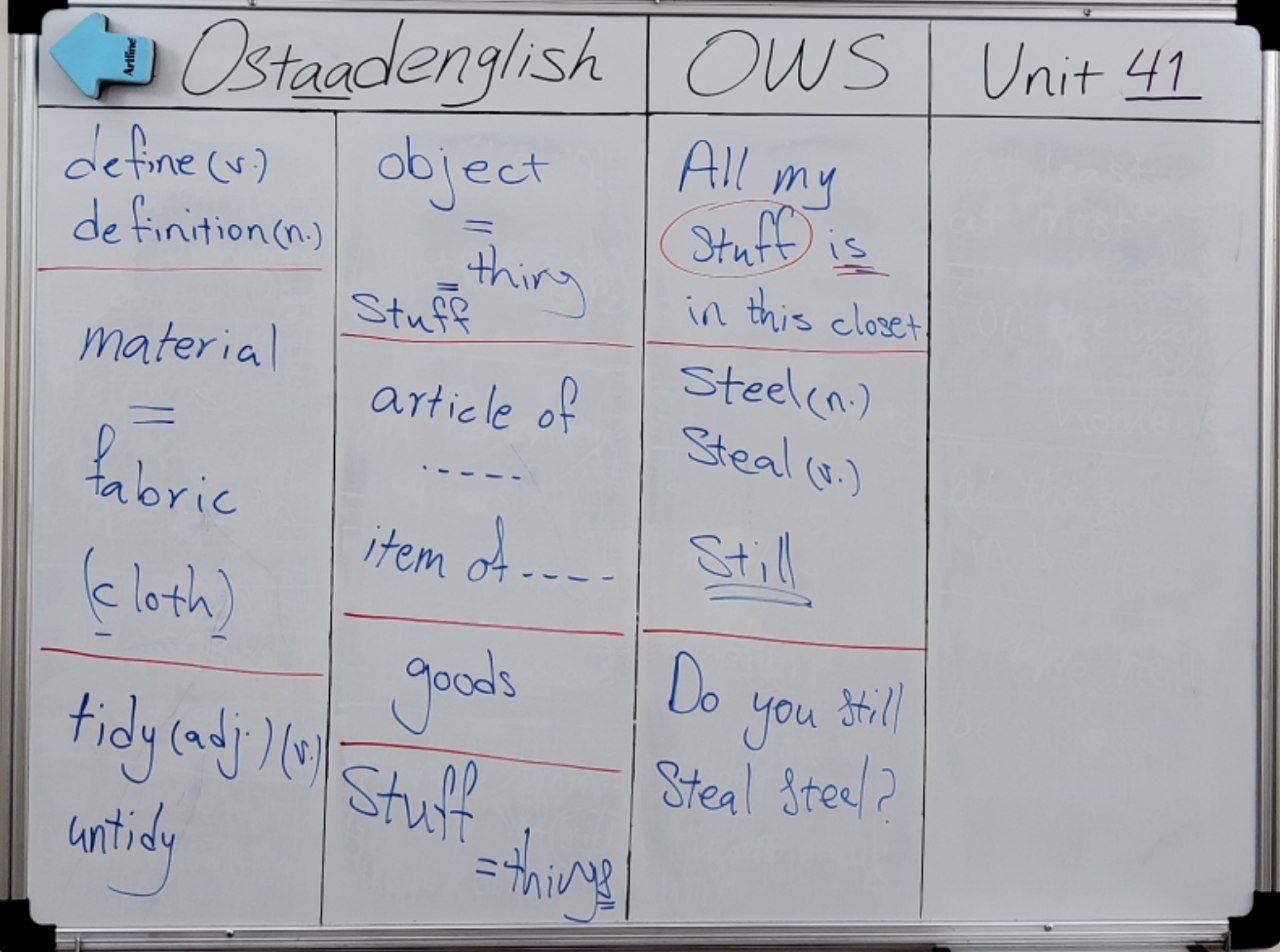 Artline
Ostaadenglish
OWS
Unit 41
define (v.)
definition (n.)
material
=
fabric
(cloth)
tidy (adj.) (v.)
untidy
object
=
= thing
Stuff
article of
-----
item of ----
goods
Stuff
= things
All my
Stuff is
in this closet.
Steel (n.)
Steal (v.)
Still
Do you still
Steal steel?